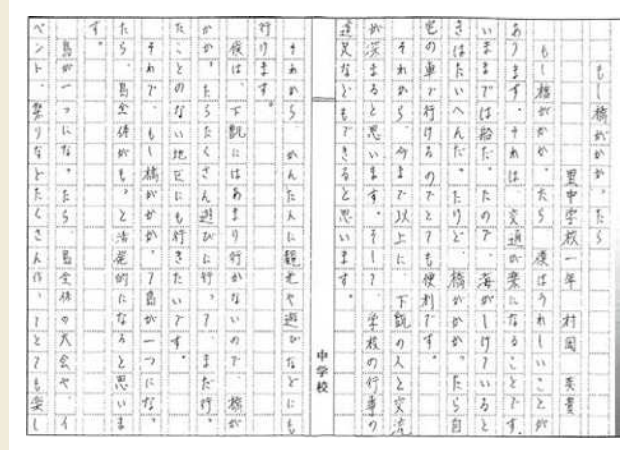 もし橋がかかったら
里中学校一年 村岡 美貴
もし橋がかかったら、僕はうれしいことが
あります。それは、交通が楽になることです。
いままでは船だったので、海がしけていると
きはたいへんだったけど、橋がかかったら自
宅の車で行けるのでとても便利です。
それから、今まで以上に、下甑の人と交流
が深まると思います。そして、学校の行事の
遠足などもできると思います。
中学校
それから、かんたんに観光や遊びなどにも
行けます。
僕は、下甑にはあまり行かないので、橋が
かかったらたくさん遊びに行って、まだ行っ
たことのない地区にも行きたいです。
それで、もし橋がかかって島が一つになっ
たら、島全体がもっと活発的になると思いま
す。
島が一つになったら、島全体の大会や、イ
ベント、祭りなどたくさん作ってとても楽し